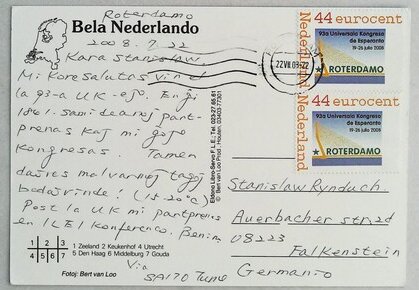 Roterdamo
Bela Nederlando
2008. 7. 22
Kara Stanislaw
Mi kore salutas vin el
la 93-a UK-ejo. En ĝi
1861 samideanoj part-
prenas kaj mi ĝojas
kongresas. Tamen
daŭras malvarmaj tagoj
bedaŭrinde! (15-20°C)
Post la UK mi partprenos
en ILEI konferenco. Benin.
Via
SAITO Tsune
1 2 3
4 5 6 7
1 Zeeland 2 Keukenhof 4 Utrecht
5 Den Haag 6 Middelburg 7 Gouda
Fotoj: Bert van Loo
© Bert van Loo Prod.
44 eurocent
Nederland
93a Universala Kongreso
de Esperanto
19-26 julio 2008
ROTERDAMO
44 eurocent
Nederland
93a Universala Kongreso
de Esperanto
19-26 julio 2008
ROTERDAMO
Stanislaw Rynduch
Auerbacher str.
08223
Falkenstein
Germanio